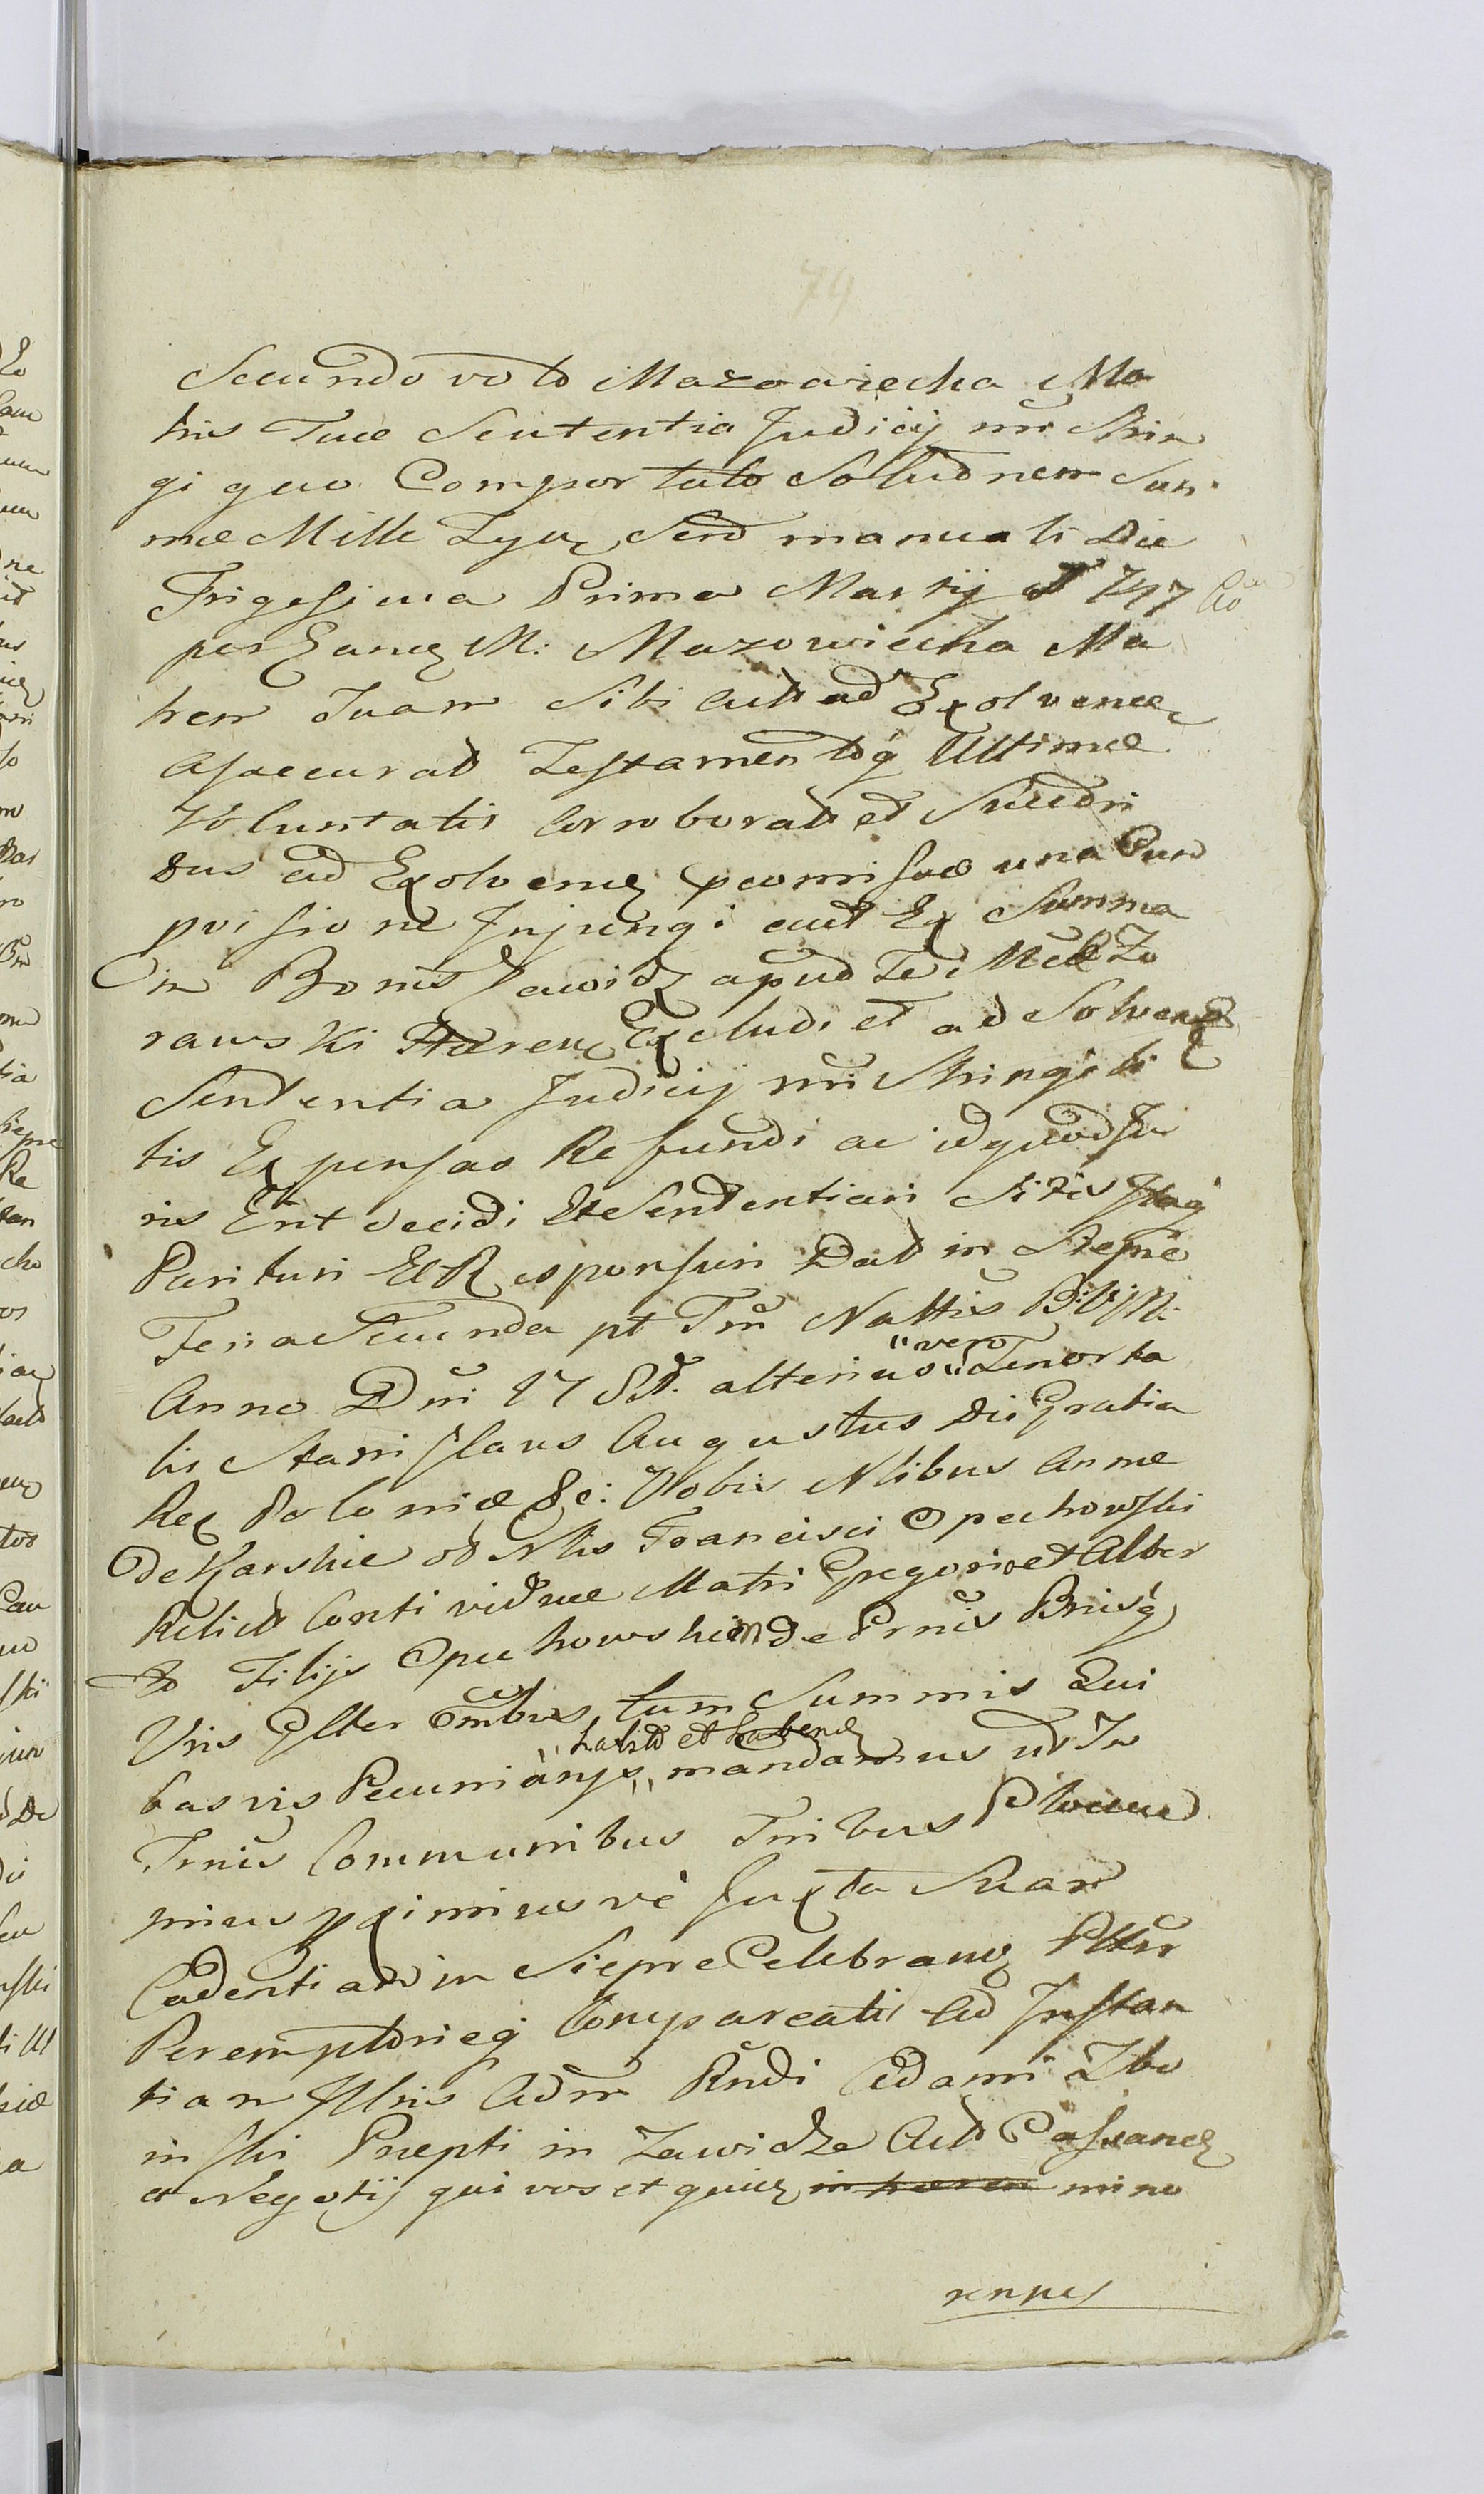 79
Secundo voto Mazowiecka Ma
tris Tuæ Sententia Judicij nri Strin
gi quo Comportato Solutionem Sum
mæ Mille Tynf Scrpt manuali Die
Trigesima Prima Martij 1747 Ao
per Eand M: Mazowiecka Ma
trem Tuam Sibi dat ad Exolvend
Assecurat Testamentoq Ultimæ
Voluntatis Corroborat et
dus ad Exolvend præmissæ una Cum
pvisione Injungi aut Ex Summa
in Bonis Zawidz apud Te
rawski Hæren Excludi et ad Solvend
Sententia Judicij nri Stringi li
tis Expensas Refundi ac id quod Ju
ris Erit decidi Et Sententiari Sitis Itaq
Parituri Et Responsuri Dat in Siepre
Feria Secunda pt Fm Nattis B: V: M:
Anno Dni 178 alterius "vero" Tenor ta
lis Stanislaus Augustus Dei Gratia
Rex Poloniæ &c: Vobis Nlibus Annæ
De Karskie ol Nlis Francisci Opechowski
Relict Consti viduæ Matri Gregorio et Alber
to Filijs Opechowskim de Prnis Brnisq
Vris Glter Ombus, tum Summis Qui
busvis Pecuniarijs "habit et habend" mandamus ut In
Trnis Communibus Tribus
minus primisve Juxta Suam
Cadentiam in Siepre Celebrand
Peremptorieq Compareatis Ad Instan
tiam Illris Adm Rndi Adami Zbo
inski Prepti in Zawidze
et Negotij qui vos et quid in hæren mino
rennes